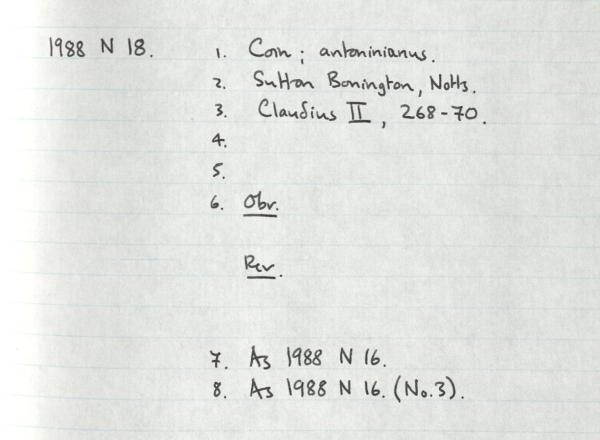 1988 N 18. 1. Coin; antoninianus.
2. Sutton Bonington, Notts.
3. Claudius II, 268-70.
4.
5.
6. Obv.
Rev.
7. As 1988 N 16.
8. As 1988 N 16. (No.3).